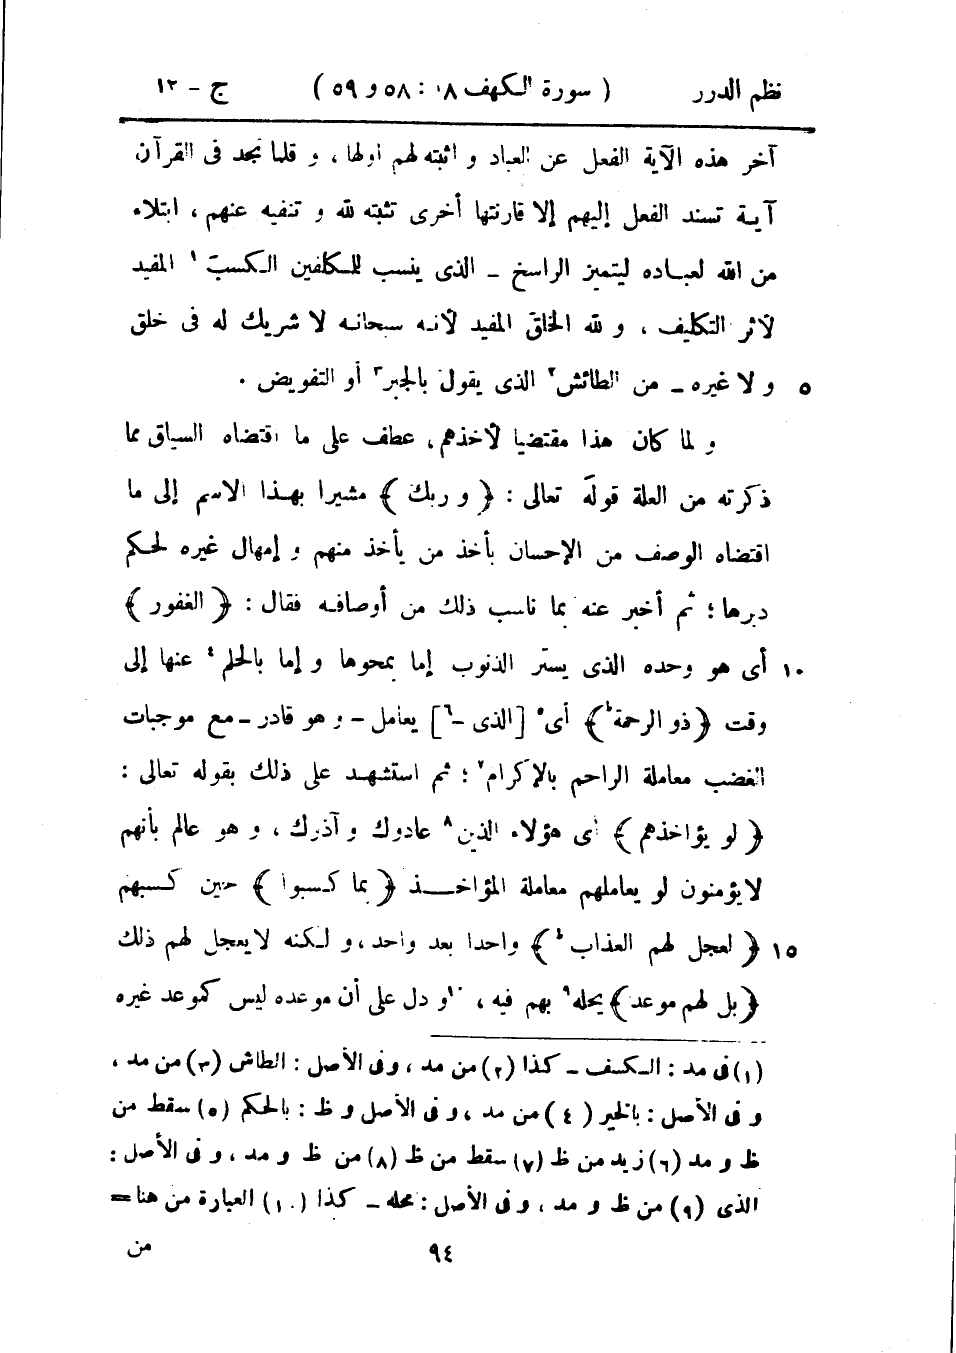 نظم الدرر ( سورة الكهف ١٨ : ٥٨ و ٥٩ ) ج - ١٢
آخر هذه الآية الفعل عن العباد و اثبته لهم اولها ، و قلما تجد فى القرآن
آية تسند الفعل إليهم إلا قارنتها أخرى تثبته لله و تنفيه عنهم ، ابتلاء
من الله لعباده ليتميز الراسخ - الذى ينسب للمكلفين الكسب ١ المفيد
لأثر التكليف ، و لله الخلق المفيد لأنه سبحانه لا شريك له فى خلق
٥ و لا غيره - من الطائش ٢ الذى يقول بالجبر ٣ أو التفويض .
و لما كان هذا مقتضيا لأخذهم ، عطف على ما اقتضاه السياق مما
ذكرته من العلة قوله تعالى : ﴿ و ربك ﴾ مشيرا بهذا الاسم إلى ما
اقتضاه الوصف من الإحسان بأخذ من يأخذ منهم و إمهال غيره لحكم
دبرها ؛ ثم أخبر عنه بما ناسب ذلك من أوصافه فقال : ﴿ الغفور ﴾
١٠ أى هو وحده الذى يستر الذنوب إما بمحوها و إما بالحلم ٤ عنها إلى
وقت ﴿ ذو الرحمة ؕ ﴾ أى ٥ [ الذى - ٦ ] يعامل - و هو قادر - مع موجبات
الغضب معاملة الراحم بالإكرام ٧ ؛ ثم استشهد على ذلك بقوله تعالى :
﴿ لو يؤاخذهم ﴾ أى هؤلاء الذين ٨ عادوك و آذوك ، و هو عالم بأنهم
لا يؤمنون لو يعاملهم معاملة المؤاخذ ﴿ بما كسبوا ﴾ حين كسبهم
١٥ ﴿ لعجل لهم العذاب ؕ ﴾ واحدا بعد واحد ، و لكنه لا يعجل لهم ذلك
﴿ بل لهم موعد ﴾ يحله ٩ بهم فيه ، ١٠ و دل على أن موعده ليس كموعد غيره
(١) فى مد : الكسف - كذا (٢) من مد ، و فى الأصل : الطاش (٣) من مد ،
و فى الأصل : بالخير (٤) من مد ، و فى الأصل و ظ : بالحكم (٥) سقط من
ظ و مد (٦) زيد من ظ (٧) سقط من ظ (٨) من ظ و مد ، و فى الأصل :
الذى (٩) من ظ و مد ، و فى الأصل : محله - كذا (١٠) العبارة من هنا =
٩٤ من